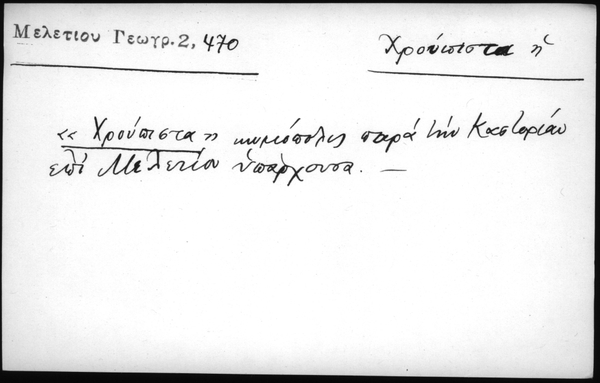 Μελετίου Γεωγρ. 2, 470
Χρούπιστα ἡ
«Χρούπιστα» κωμόπολις παρά τήν Καστορίαν
επί Μελετίου ὑπάρχουσα. —